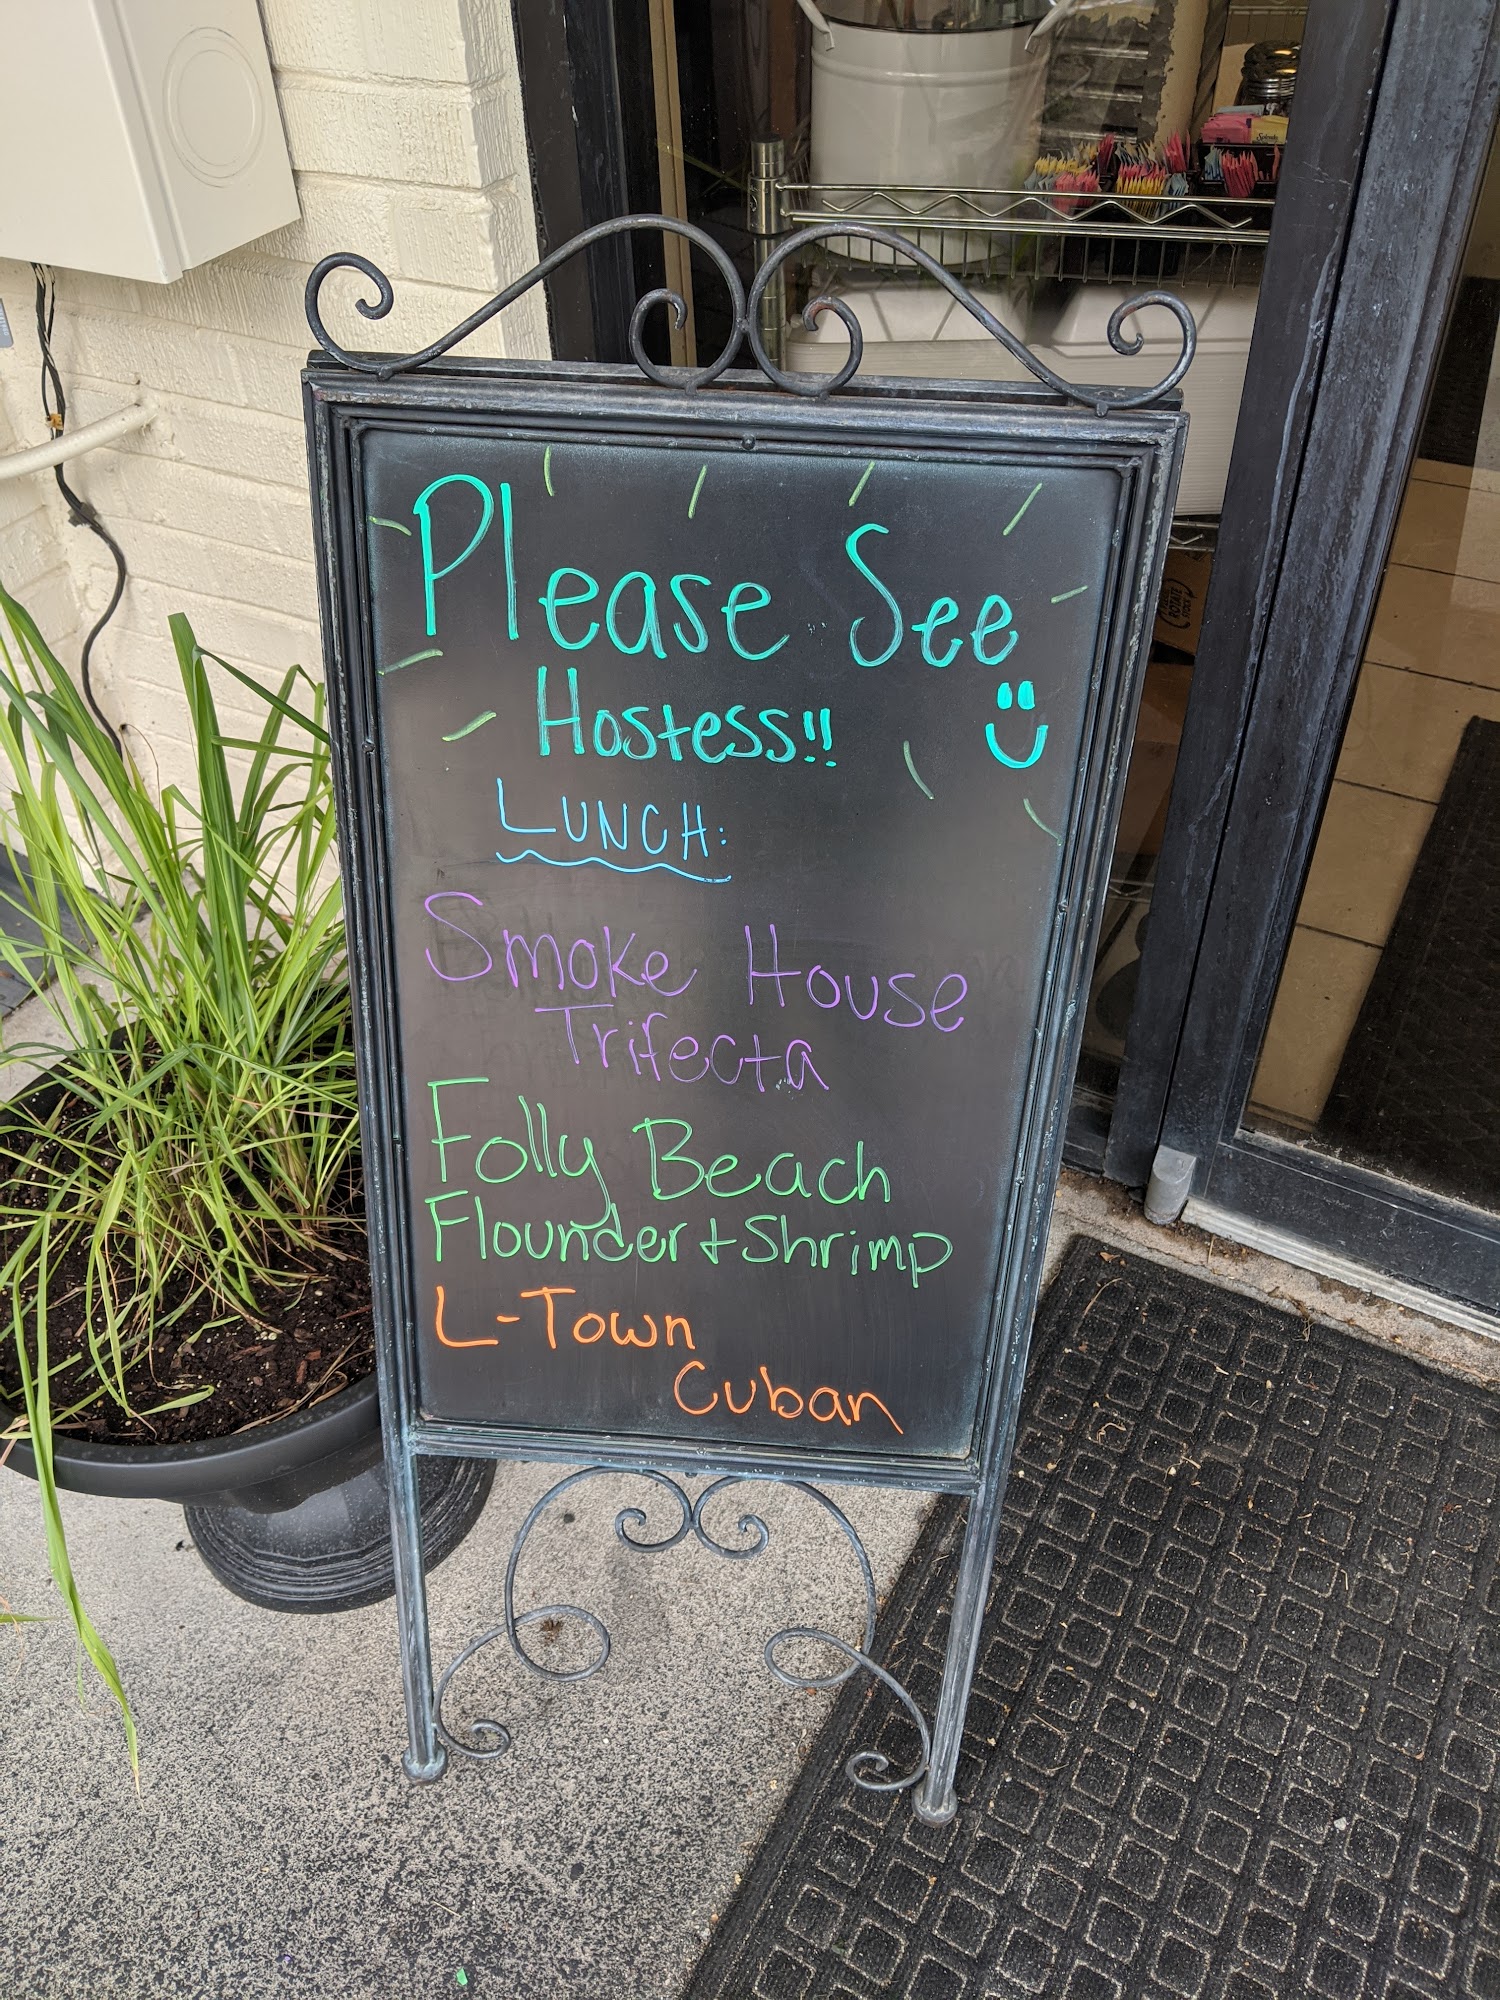 Please See
Hostess!!
LUNCH:
Smoke House
Trifecta
Folly Beach
Flounder + Shrimp
L-Town
Cuban
Splenda
ROTATE
STOCK